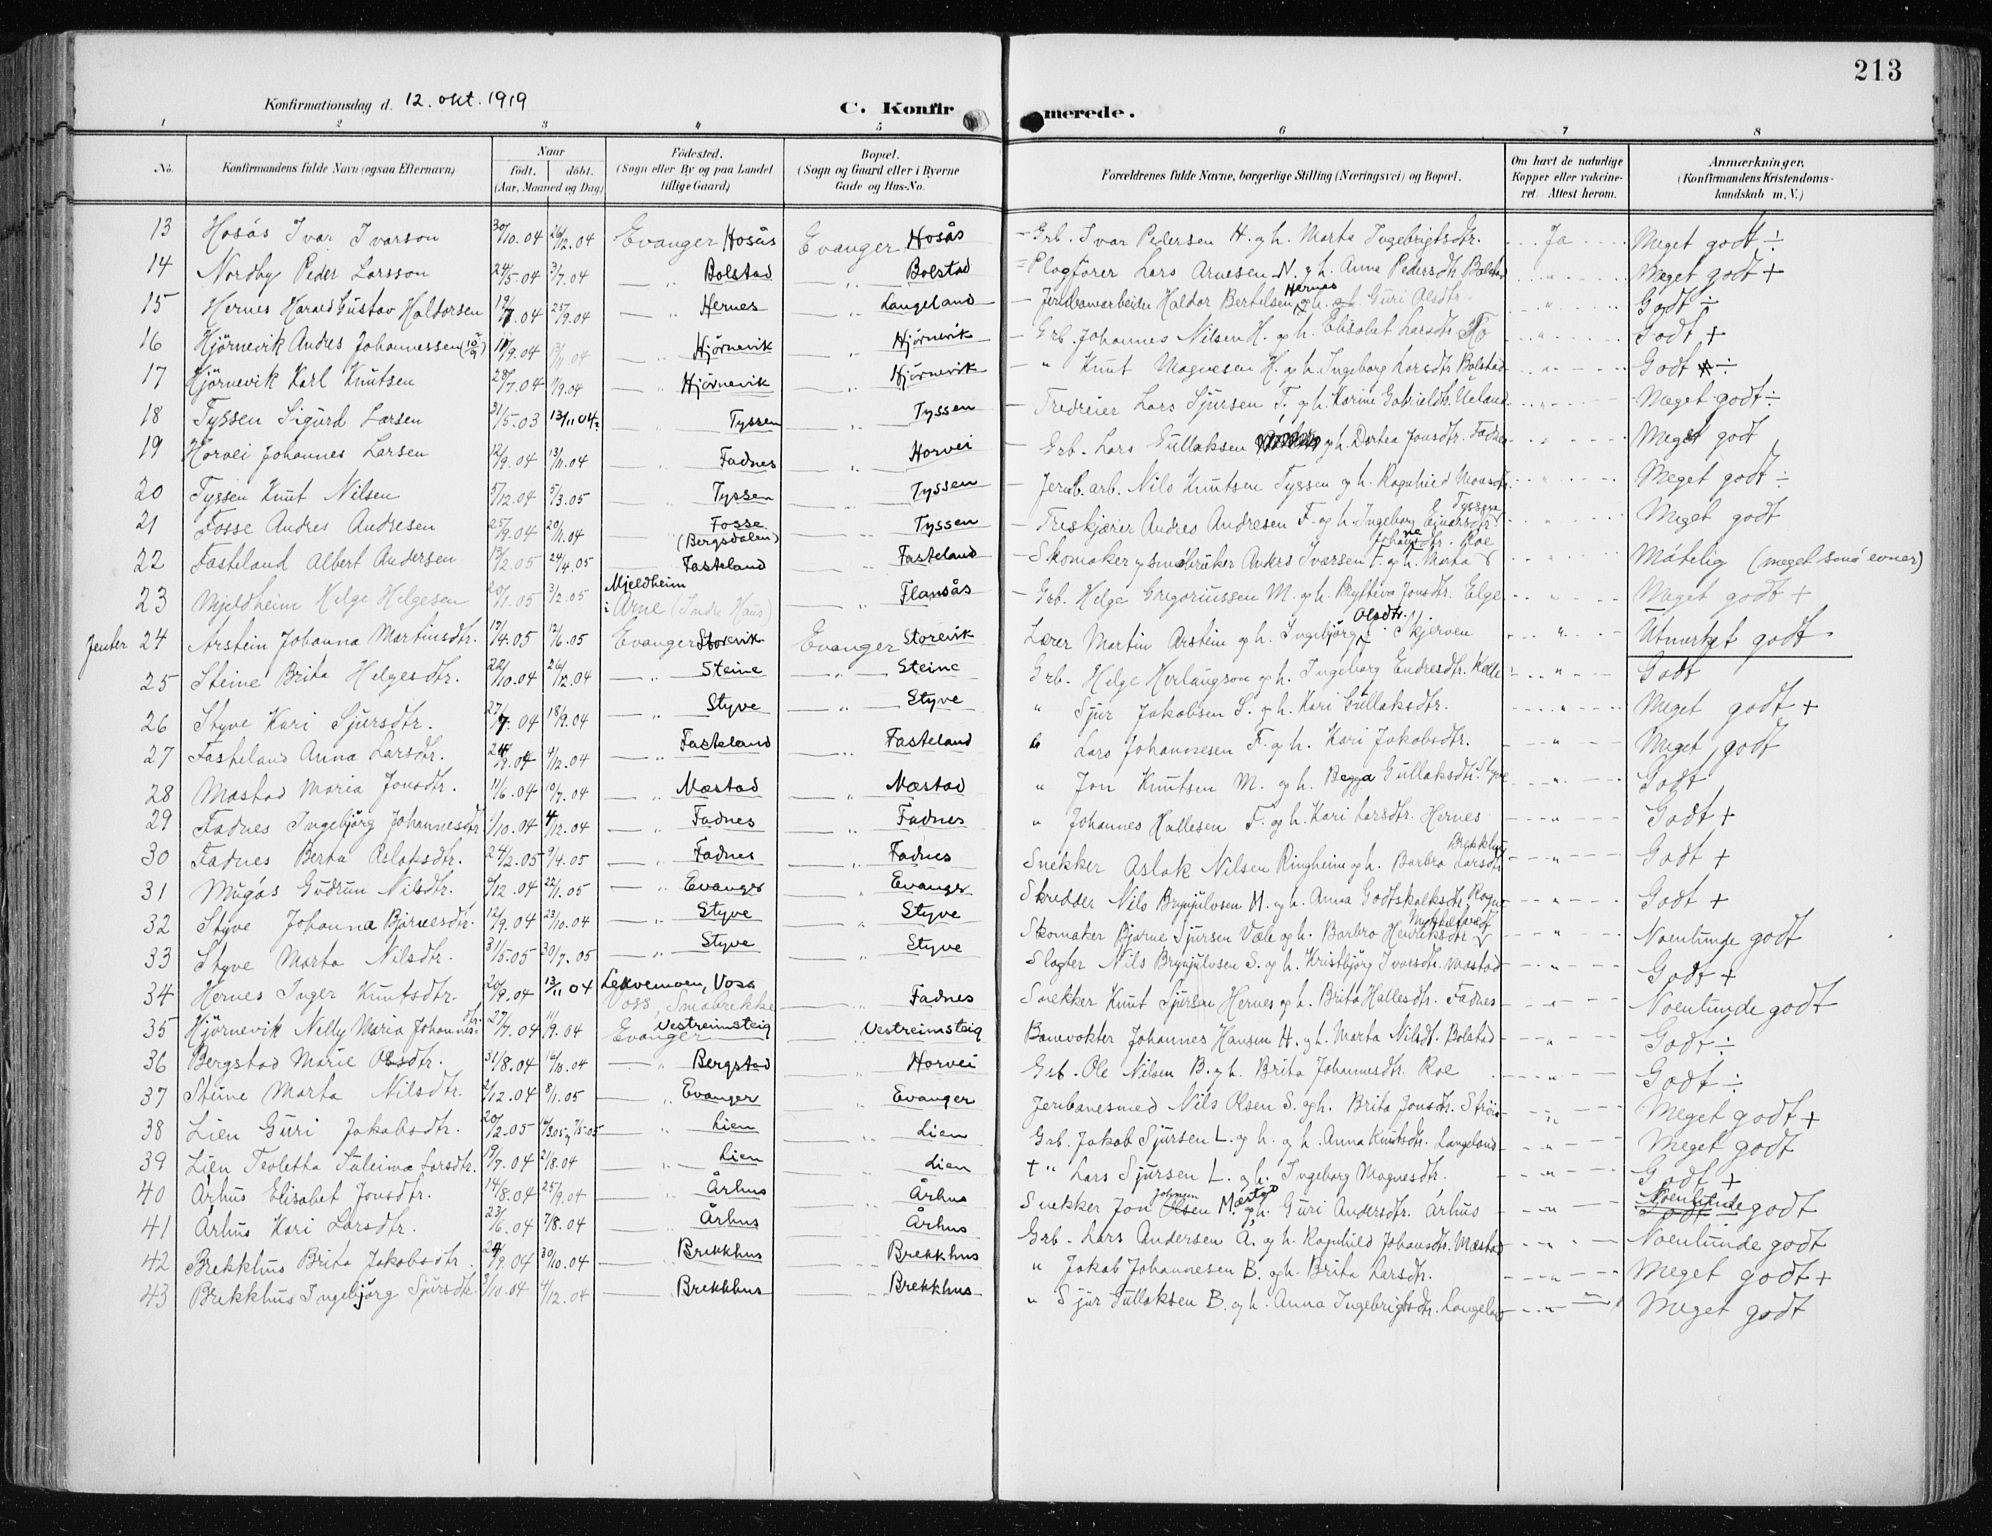 213
Konfirmationsdag d. 12. okt. 1919 C. Konfirmerede.
1 2 3 4 5 6 7 8
No. Konfirmandens fulde Navn (ogsaa Efternavn) Naar født. døbt. (Aar, Maaned og Dag) Fødested. (Sogn eller By og paa Landet tillige Gaard) Bopæl. (Sogn og Gaard eller i Byerne Gade og Hus-No. Forældrenes fulde Navne, borgerlige Stilling (Næringsvei) og Bopæl. Om havt de naturlige Kopper eller vakcineret. Attest herom. Anmærkninger, (Konfirmandens Kristendomskundskab m. V.)
13 Hosås Ivar Ivarson 30/10.04 26/12.04 Evanger Hosås Evanger Hosås Grb. Ivar Pedersen H. og h. Marta Ingebrigtsdtr. Ja Meget godt ÷
14 Nordby Peder Larsson 24/5.04 3/7.04 " Bolstad " Bolstad Plagfører Lars Arnesen N. og h. Anna Pedersdtr. Bolstad " Meget godt +
15 Hernes Harald Gustav Haldorsen 19/7.04 25/9.04 " Hernes Langeland Jernbanearbeider Haldor Bertelsen Hernes og h. Guri Olsdtr. " Godt ÷
16 Hjörnevik Andres Johannessen 11/9.04 13/11.04 " Hjørnevik " Hjørnevik Grb. Johannes Nilsen H. og h. Elisabet Larsdtr. Fo " Godt +
17 Hjörnevik Karl Knutsen 28/7.04 /9.04 " Hjørnevik " Hjørnevik " Knut Magnesen H. og h. Ingeborg Larsdtr. Bolstad " Godt ÷
18 Tyssen Sigurd Larsen 31/5.03 13/11 04 " Tyssen " Tyssen Tredreier Lars Sjursen T. og h. Karine Gabrieldtr. Ueland " Meget godt ÷
19 Horvei Johannes Larsen 12/9.04 13/11.04 " Fadnes " Horvei Grb. Lars Gullaksen og h. Dortea Jonsdtr. Fadnes " Meget godt
20 Tyssen Knut Nilsen 5/12.04 5/3.05 " Tyssen " Tyssen Jernb. arb. Nils Knutsen Tyssen og h. Ragnhild Monsdtr. " Meget godt ÷
21 Fosse Andres Andresen 25/9.04 20/11.04 Fosse (Bergsdalen) " Tyssen Treskjærer Andres Andresen F. og h. Ingeborg Eivarsdtr. Tyssen " Meget godt
22 Fasteland Albert Andersen 13/2.05 24/4.05 " Fasteland " Fasteland Skomaker og småbruker Anders Ivarsen F. og h. Marta Johannesdtr. Roe " Måtelig (meget små evner)
23 Mjeldheim Helge Helgesen 20/1.05 3/2.05 Mjeldheim i Arne (Indre Haus) " Flansås Grb. Helge Gregoriussen M. og h. Brytteva Jonsdtr. Elge " Meget godt +
Jenter 24 Arstein Johanna Martinsdtr. 17/4.05 12/6.05 Evanger Storevik Evanger Storevik Lærer Martin Arstein og h. Ingebjørg Olsdtr. Skjerven " Utmerket godt
25 Steine Brita Helgesdtr. 22/10.04 26/12.04 " Steine " Steine Grb. Helge Herlaugson og h. Ingeborg Endresdtr. Kalle " Godt
26 Styve Kari Sjursdtr. 27/7.04 18/9.04 " Styve " Styve " Sjur Jakobsen S. og h. Kari Gullaksdtr. " Meget godt +
27 Fasteland Anna Larsdtr. 24/9.04 4/12.04 " Fasteland " Fasteland " Lars Johannesen F. og h. Kari Jakobsdtr. " Meget godt
28 Mæstad Maria Jonsdtr. 11/6.04 10/7.04 " Mæstad " Mæstad " Jon Knutsen M. og h. Begga Gullaksdtr. Styve " Godt
29 Fadnes Ingebjörg Johannesdtr. 1/10.04 4/12.04 " Fadnes " Fadnes " Johannes Hallesen F. og h. Kari Larsdtr. Hernes " Godt +
30 Fadnes Berta Aslaksdtr. 24/2.05 9/4.05 " Fadnes " Fadnes Snekker Aslak Nilsen Ringheim og h. Barbro Larsdtr. Brekkhus " Godt +
31 Mugås Gudrun Nilsdtr. /12.04 22/1.05 " Evanger " Evanger Skredder Nils Brynjulvsen M. og h. Anna Godtskalksdtr. " Godt +
32 Styve Johanna Bjarnesdtr. 12/9.04 23/10.04 " Styve " Styve Skomaker Bjarne Sjursen Væle og h. Barbro Henriksdtr. " Noenlunde godt
33 Styve Marta Nilsdtr. 31/5.05 30/7.05 " Styve " Styve Slagter Nils Brynjulvsen S. og h. Kristbjörg Ivarsdtr. Mæstad " Godt +
34 Hernes Inger Knutsdtr. 20/9.04 13/11 04 Lekvemoen, Voss Voss, Småbrekke Fadnes Snekker Knut Sjursen Hernes og h. Brita Hallesdtr. Fadnes " Noenlunde godt
35 Hjörnevik Nelly Maria Johannesdtr. 27/7.04 11/9.04 Evanger Vestreimsteig Vestreimsteig Banevokter Johannes Hansen H. og h. Marta Nilsdtr. Bolstad " Godt ÷
36 Bergstad Marie Olsdtr. 31/8.04 16/10.04 " Bergstad " Horvei Grb. Ole Nilsen B. og h. Brita Johannesdtr. Roe " Godt ÷
37 Steine Marta Nilsdtr. 2/12.04 8/1.05 " Evanger " Evanger Jernbanesmed Nils Olsen S. og h. Brita Jonsdtr. " Meget godt +
38 Lien Guri Jakobsdtr. 20/2.05 " Lien " Lien Grb. Jakob Sjursen L. og h. og h. Anna Knutsdtr. Langeland " Meget godt
39 Lien Teoletta Suleima Larsdtr. 19/7.04 21/8.04 " Lien Lien + " Lars Sjursen L. og h. Ingeborg Magnesdtr. " Godt +
40 Århus Elisabet Jonsdtr. 14/8.04 25/9.04 " Århus " Århus Snekker Jon Olsen Johnsen Mæstad og h. Guri Andersdtr. Århus " Godt Noenlunde godt
41 Århus Kari Larsdtr. 23/6.04 7/8.04 " Århus " Århus Grb. Lars Andersen Å. og h. Ragnhild Johansdtr. Mæstad " Noenlunde godt
42 Brekkhus Brita Jakobsdtr. 24/9.04 30/10.04 " Brekkhus " Brekkhus " Jakob Johannesen B. og h. Brita Larsdtr. " Meget godt +
43 Brekkhus Ingebjørg Sjursdtr. 3/10.04 4/12.04 Brekkhus " Brekkhus " Sjur Gullaksen B. og h. Anna Ingebrigtsdtr. Langeland " Meget godt